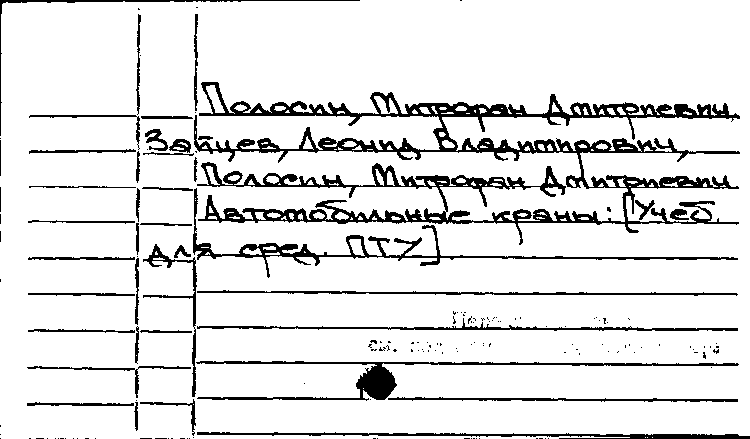 Полосин, Митрофан Дмитриевич.
Зайцев, Леонид Владимирович,
Полосин, Митрофан Дмитриевич
Автомобильные краны: [Учеб.
для сред. ПТУ].
см.